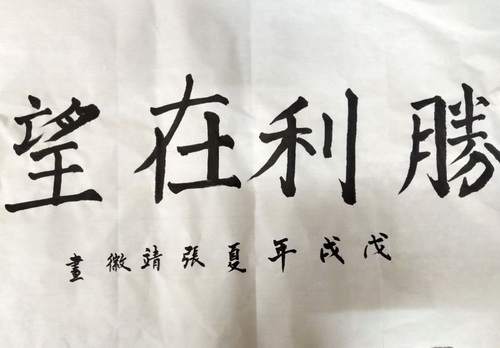 勝利在望
戊戌年夏張靖徽畫